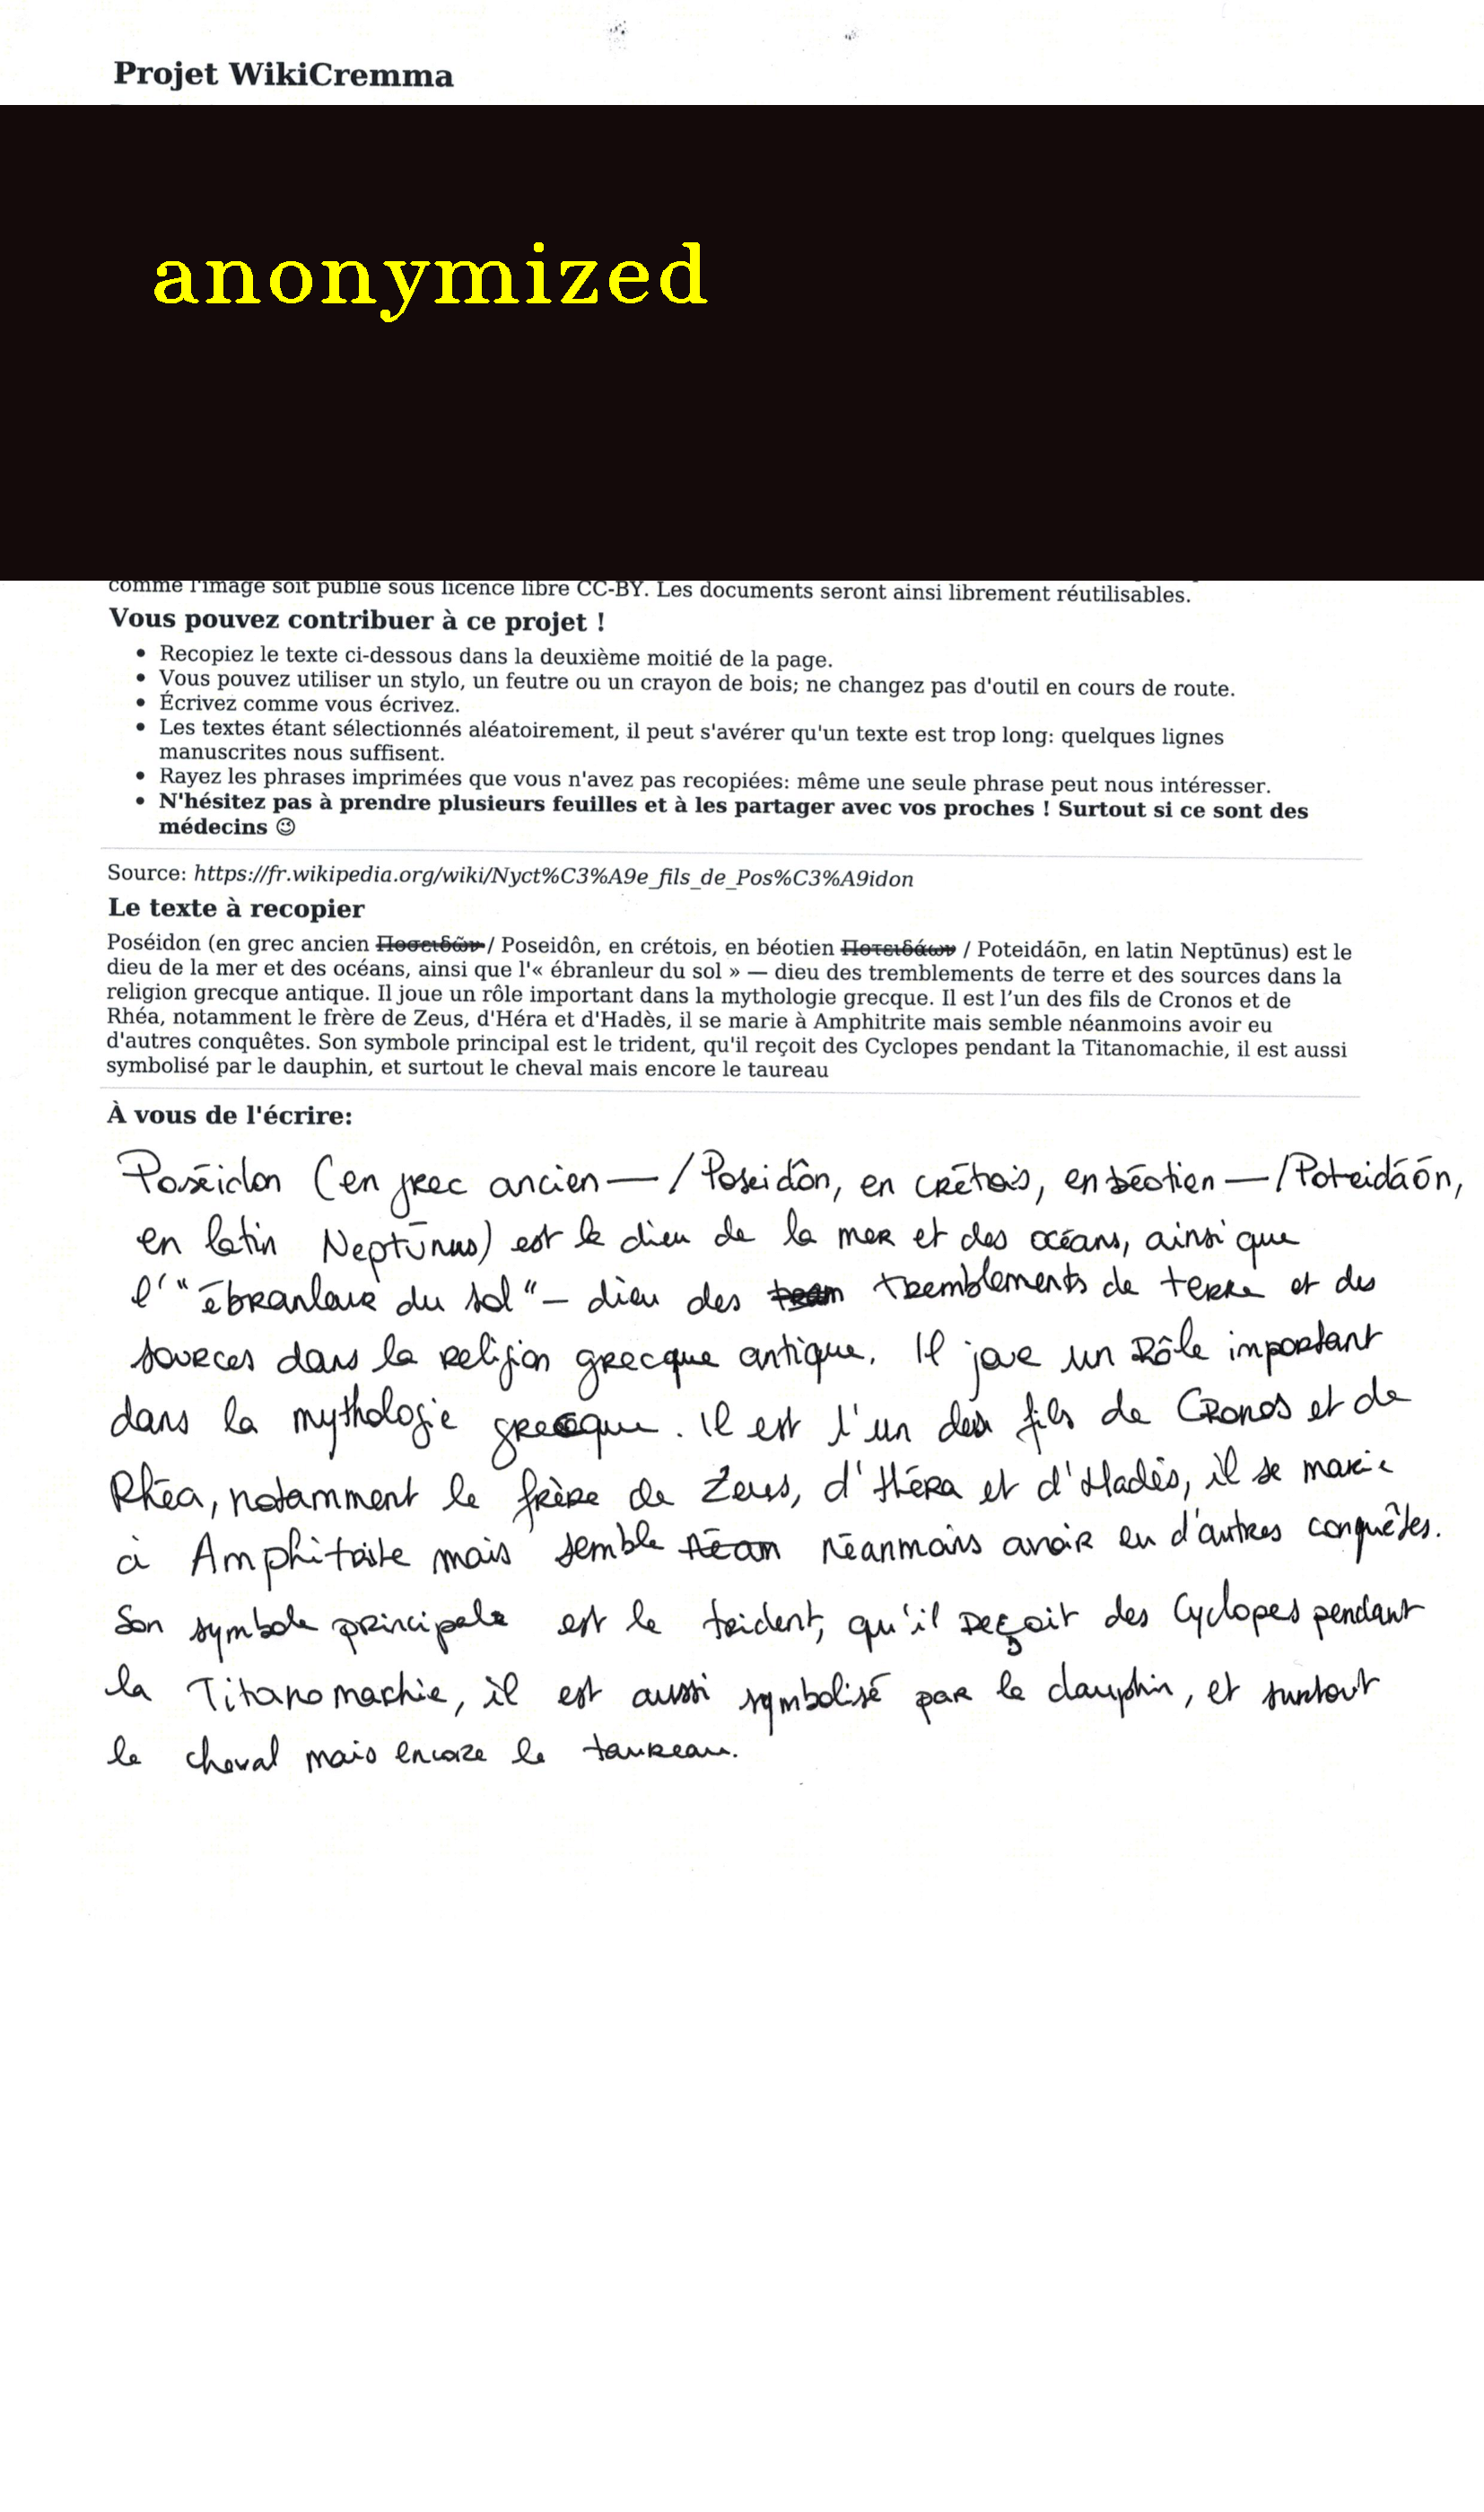 Projet WikiCremma
anonymized
comme l'image soit publié sous licence libre CC-BY. Les documents seront ainsi librement réutilisables.
Vous pouvez contribuer à ce projet !
• Recopiez le texte ci-dessous dans la deuxième moitié de la page.
• Vous pouvez utiliser un stylo, un feutre ou un crayon de bois; ne changez pas d'outil en cours de route.
• Écrivez comme vous écrivez.
• Les textes étant sélectionnés aléatoirement, il peut s'avérer qu'un texte est trop long: quelques lignes
manuscrites nous suffisent.
• Rayez les phrases imprimées que vous n'avez pas recopiées: même une seule phrase peut nous intéresser.
• N'hésitez pas à prendre plusieurs feuilles et à les partager avec vos proches ! Surtout si ce sont des
médecins 😉
Source: https://fr.wikipedia.org/wiki/Nyct%C3%A9e_fils_de_Pos%C3%A9idon
Le texte à recopier
Poséidon (en grec ancien Ποσειδῶν / Poseidôn, en crétois, en béotien Ποτειδάων / Poteidáōn, en latin Neptūnus) est le
dieu de la mer et des océans, ainsi que l'« ébranleur du sol » — dieu des tremblements de terre et des sources dans la
religion grecque antique. Il joue un rôle important dans la mythologie grecque. Il est l’un des fils de Cronos et de
Rhéa, notamment le frère de Zeus, d'Héra et d'Hadès, il se marie à Amphitrite mais semble néanmoins avoir eu
d'autres conquêtes. Son symbole principal est le trident, qu'il reçoit des Cyclopes pendant la Titanomachie, il est aussi
symbolisé par le dauphin, et surtout le cheval mais encore le taureau
À vous de l'écrire:
Poséidon (en grec ancien — / Poseidôn, en crétois, en béotien — / Poteidáōn,
en latin Neptūnus) est le dieu de la mer et des océans, ainsi que
l'"ébranleur du sol" – dieu des tremblements de terre et des
sources dans la religion grecque antique. Il joue un rôle important
dans la mythologie grecque. Il est l'un des fils de Cronos et de
Rhéa, notamment le frère de Zeus, d'Héra et d'Hadès, il se marie
à Amphitrite mais semble néan néanmoins avoir eu d'autres conquêtes.
Son symbole principale est le trident, qu'il reçoit des Cyclopes pendant
la Titanomachie, il est aussi symbolisé par le dauphin, et surtout
le cheval mais encore le taureau.